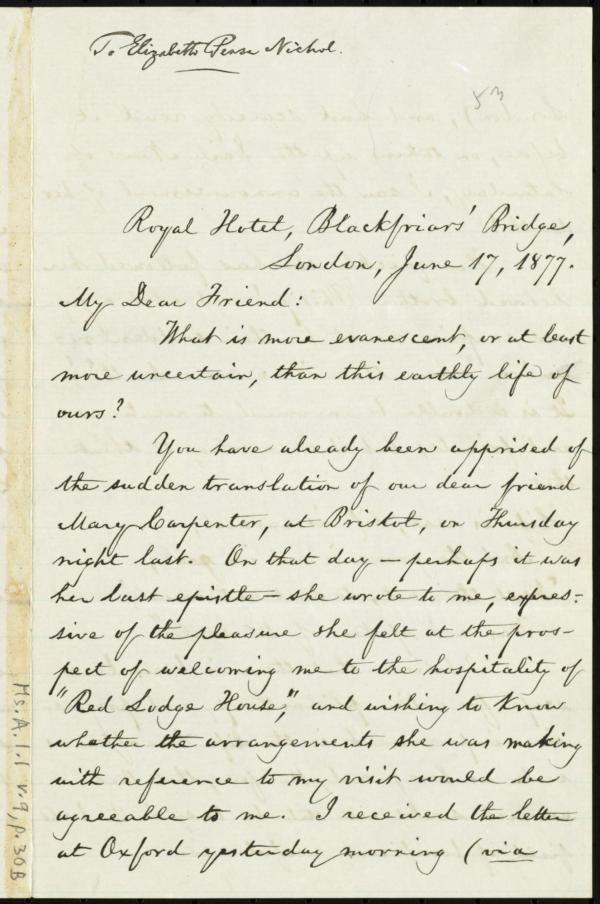 To Elizabeth Pease Nichol.
53
Royal Hotel, Blackfriars' Bridge,
London, June 17, 1877.
My Dear Friend:
What is more evanescent, or at least
more uncertain, than this earthly life of
ours?
You have already been apprised of
the sudden translation of our dear friend
Mary Carpenter, at Bristol, on Thursday
night last. On that day — perhaps it was
her last epistle — she wrote to me, expres-
sive of the pleasure she felt at the pros-
pect of welcoming me to the hospitality of
"Red Lodge House," and wishing to know
whether the arrangements she was making
with reference to my visit would be
agreeable to me. I received the letter
at Oxford yesterday morning (via
Ms.A.1.1 v.9, p.30B